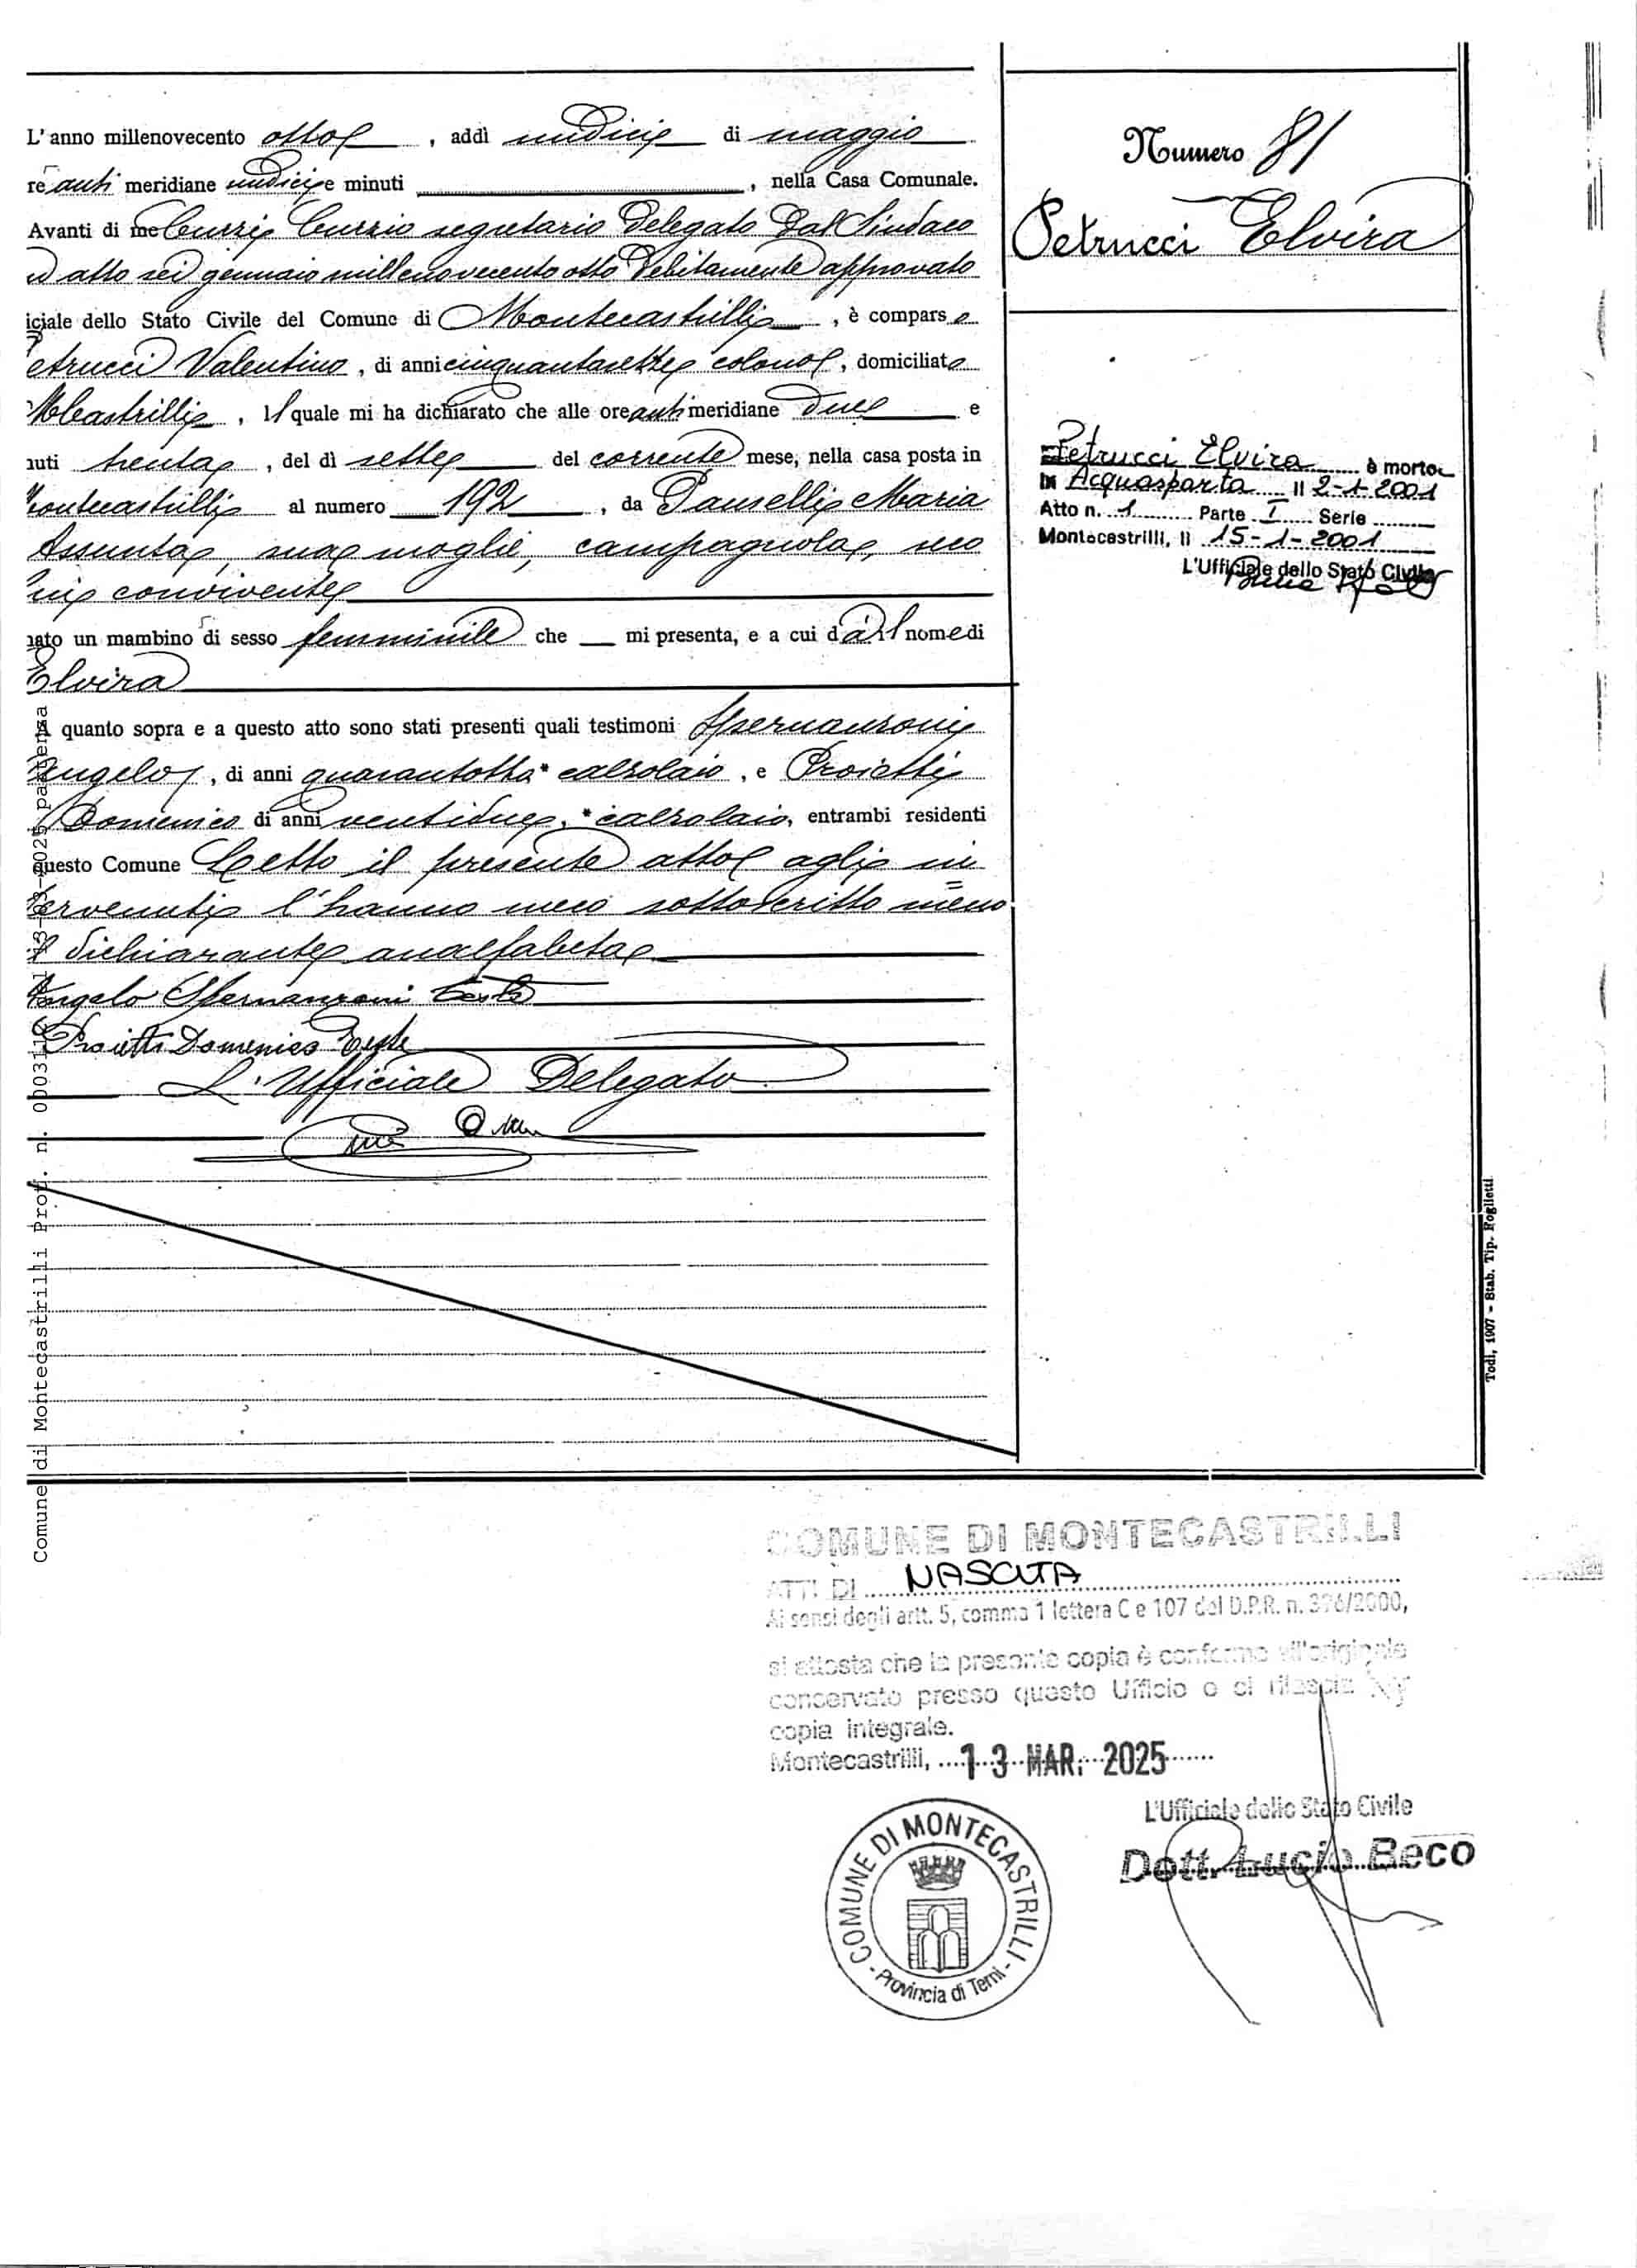 L' anno millenovecento otto , addì undici di maggio
re anti meridiane undici e minuti , nella Casa Comunale.
Avanti di me Curzi Curzio segretario Delegato Dal Sindaco
atto sei gennaio millenovecento otto Debitamente approvato
iciale dello Stato Civile del Comune di Montecastrilli , è compars o
etrucci Valentino , di anni cinquantasette colono , domiciliato
Mcastrilli , il quale mi ha dichiarato che alle ore anti meridiane due e
nuti trenta , del dì sette del corrente mese, nella casa posta in
ontecastrilli al numero 192 , da Pauselli Maria
Assunta, sua moglie, campagnola, seco
lui convivente
nato un mambino di sesso femminile che mi presenta, e a cui dà il nome di
Elvira
A quanto sopra e a questo atto sono stati presenti quali testimoni Spernanzoni
Angelo , di anni quarantotto calzolaio , e Proietti
Domenico di anni ventidue, calzolaio, entrambi residenti
questo Comune Letto il presente atto agli in
tervenuti l'hanno meco sottoscritto meno
il dichiarante analfabeta
Angelo Spernanzoni teste
Proietti Domenico Teste
L'Ufficiale Delegato
Numero 81
Petrucci Elvira
Petrucci Elvira è morta
in Acquasparta il 2-1-2001
Atto n. 1 Parte I Serie
Montecastrilli, li 15-1-2001
L'Ufficiale dello Stato Civile
Todi, 1907 - Stab. Tip. Foglietti
COMUNE DI MONTECASTRILLI
ATTI DI NASCITA
Ai sensi degli artt. 5, comma 1 lettera C e 107 del D.P.R. n. 396/2000,
si attesta che la presente copia è conforme all'originale
conservato presso questo Ufficio e si rilascia
copia integrale.
Montecastrilli, 13 MAR. 2025
L'Ufficiale dello Stato Civile
Dott. Lucio Beco
COMUNE DI MONTECASTRILLI
- Provincia di Terni -
Comune di Montecastrilli Prot. n. 13-03-2025 partenza